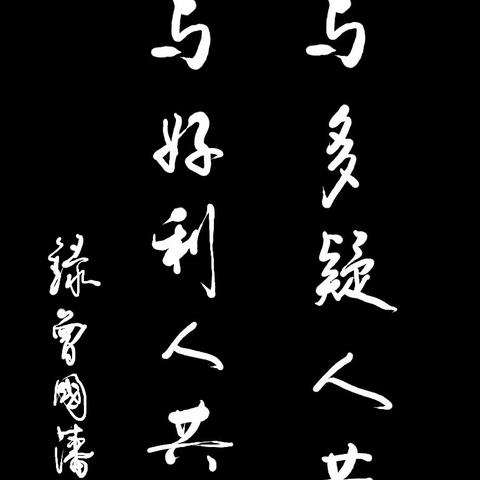 与多疑人共
与好利人共
録曾國藩